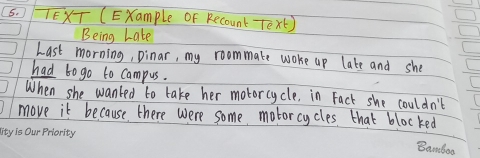 5. TEXT (EXample OF Recount Text)
Being Late
Last morning, Dinar, my roommate woke up late and she
had to go to campus.
When she wanted to take her motorcycle, in Fact she couldn't
move it because there were some motorcycles that blocked
ity is Our Priority
Bamboo